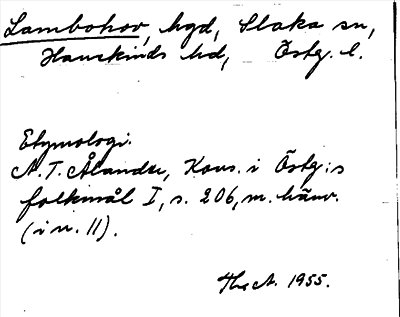 Lambohov, hgd, Slaka sn,
Hanekinds hd, Östg. l.
Etymologi.
A. T. Ålander, Kons. i Östg:s
folkmål I, s. 206, m. hänv.
(i n. 11).
1955.